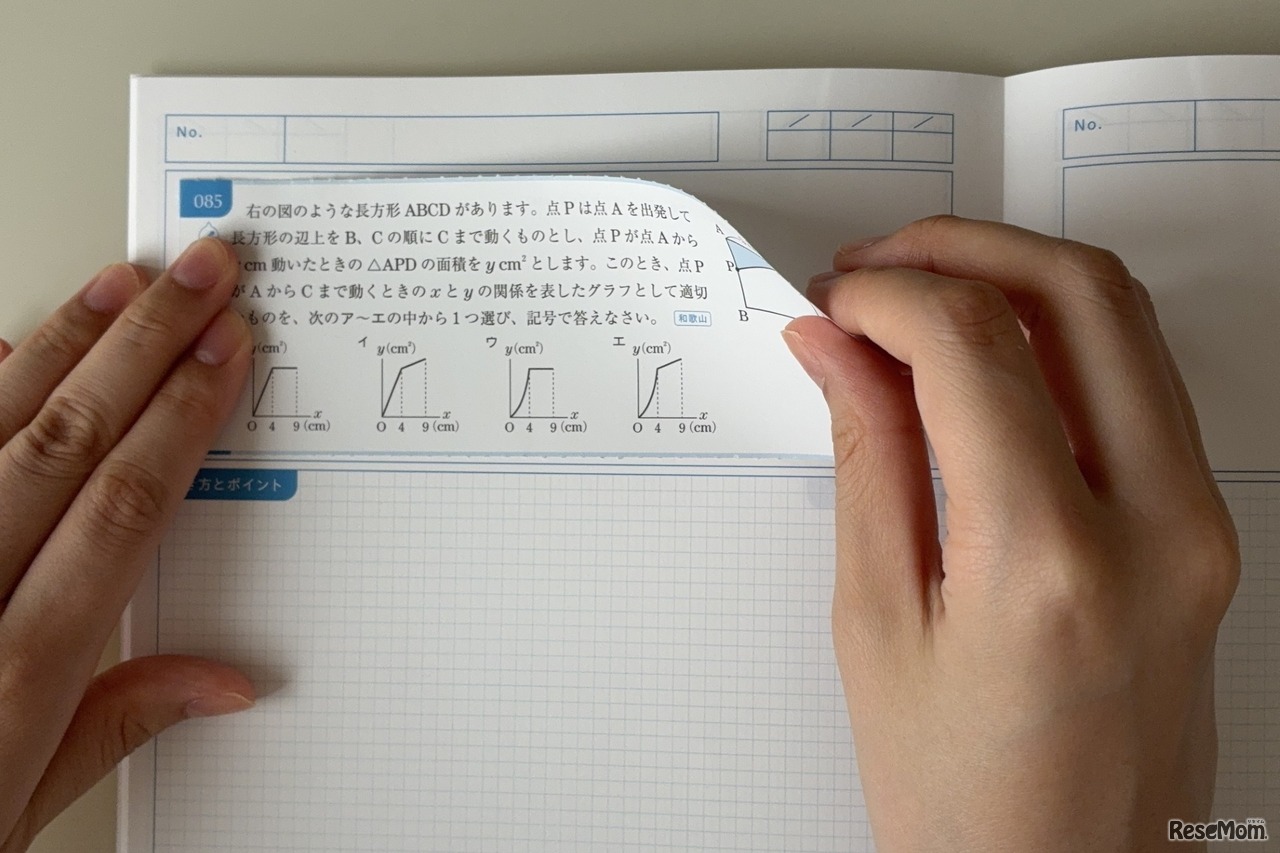 No.
No.
085
右の図のような長方形 ABCD があります。点 P は点 A を出発して
長方形の辺上を B、C の順に C まで動くものとし、点 P が点 A から
cm 動いたときの △APD の面積を y cm² とします。このとき、点 P
が A から C まで動くときの x と y の関係を表したグラフとして適切
ものを、次のア〜エの中から 1 つ選び、記号で答えなさい。 和歌山
A
P
B
イ ウ エ
y(cm²) y(cm²) y(cm²) y(cm²)
x x x x
O 4 9 (cm) O 4 9 (cm) O 4 9 (cm) O 4 9 (cm)
方とポイント
ReseMom
リセマム